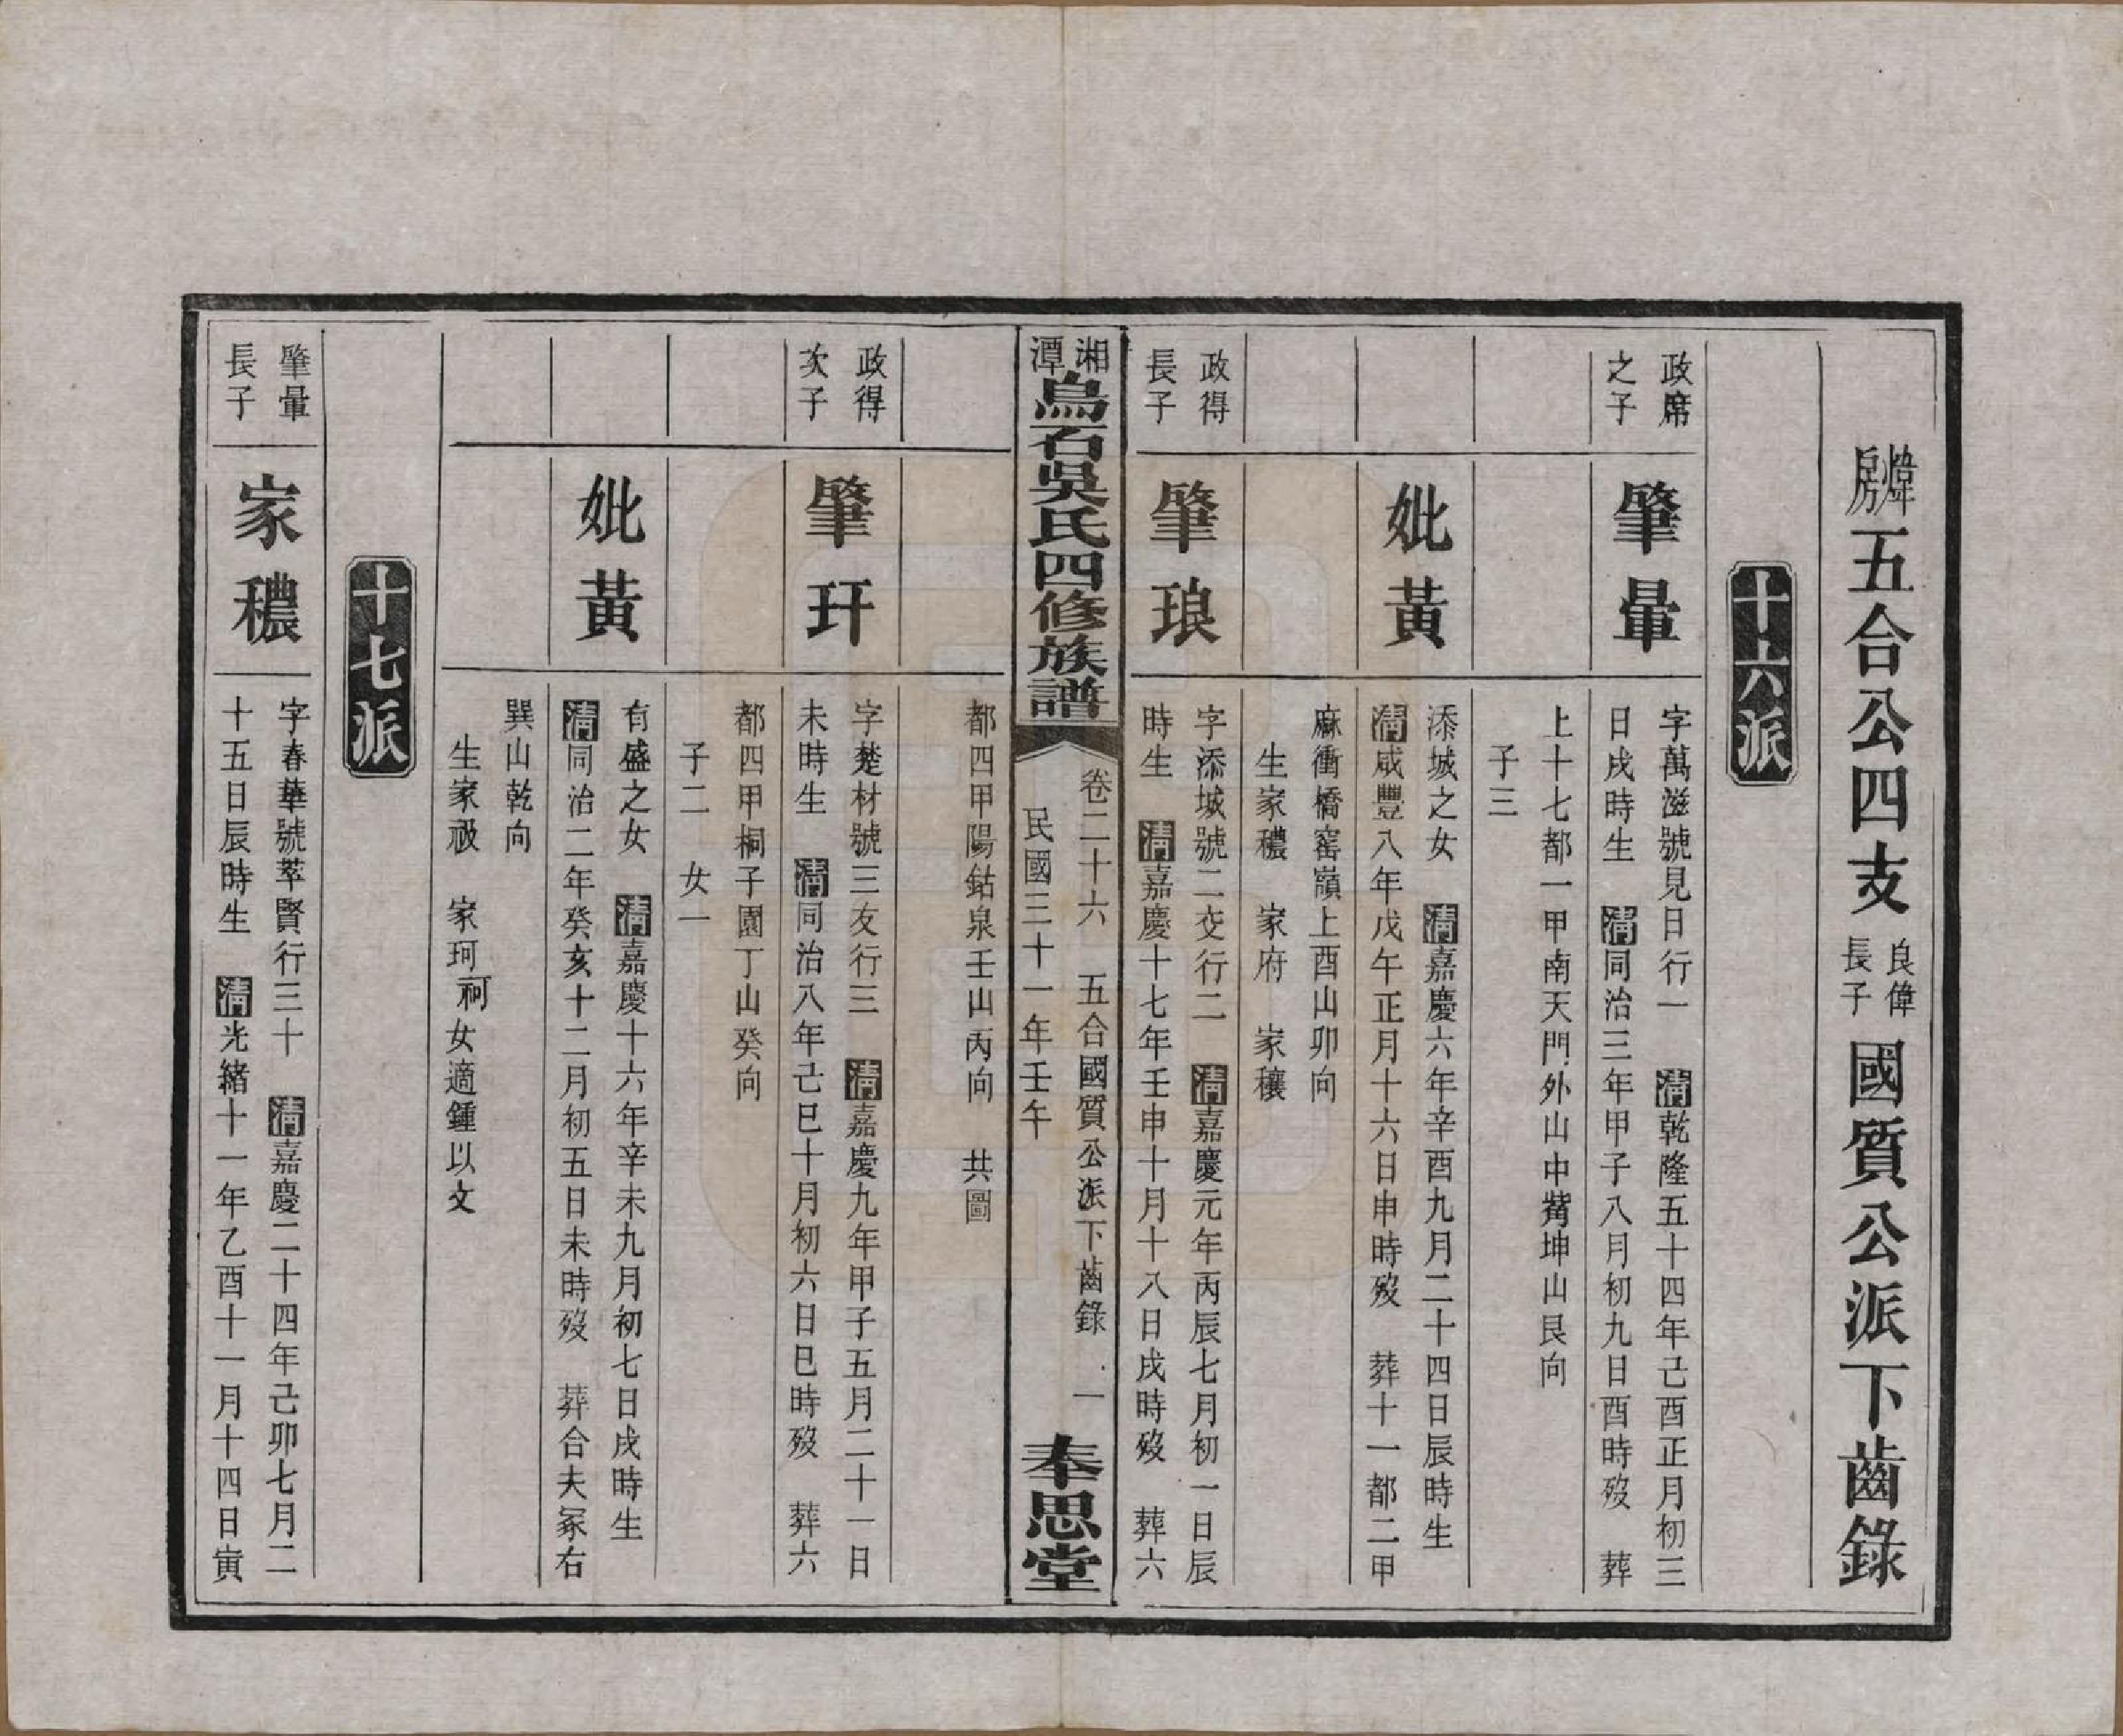 煒房五合公四支良偉長子國質公派下齒錄
十六派
政席之子
肇暈
字萬滋號見日行一 清乾隆五十四年己酉正月初三
日戌時生 清同治三年甲子八月初九日酉時歿 葬
上十七都一甲南天門外山中觜坤山艮向
子三
妣黃
添城之女 清嘉慶六年辛酉九月二十四日辰時生
清咸豐八年戊午正月十六日申時歿 葬十一都二甲
麻衝橋窰嶺上酉山卯向
生家穠 家府 家穰
政得長子
肇琅
字添城號二交行二 清嘉慶元年丙辰七月初一日辰
時生 清嘉慶十七年壬申十月十八日戌時歿 葬六
湘潭烏石吳氏四修族譜
卷二十六 五合國質公派下齒錄 一
民國三十一年壬午
奉思堂
都四甲陽鈷泉壬山丙向 共圖
政得次子
肇玕
字楚材號三友行三 清嘉慶九年甲子五月二十一日
未時生 清同治八年己巳十月初六日巳時歿 葬六
都四甲桐子園丁山癸向
子二 女一
妣黃
有盛之女 清嘉慶十六年辛未九月初七日戌時生
清同治二年癸亥十二月初五日未時歿 葬合夫冢右
巽山乾向
生家 家珂祠女適鍾以文
十七派
肇暈長子
家穠
字春華號萃賢行三十 清嘉慶二十四年己卯七月二
十五日辰時生 清光緒十一年乙酉十一月十四日寅